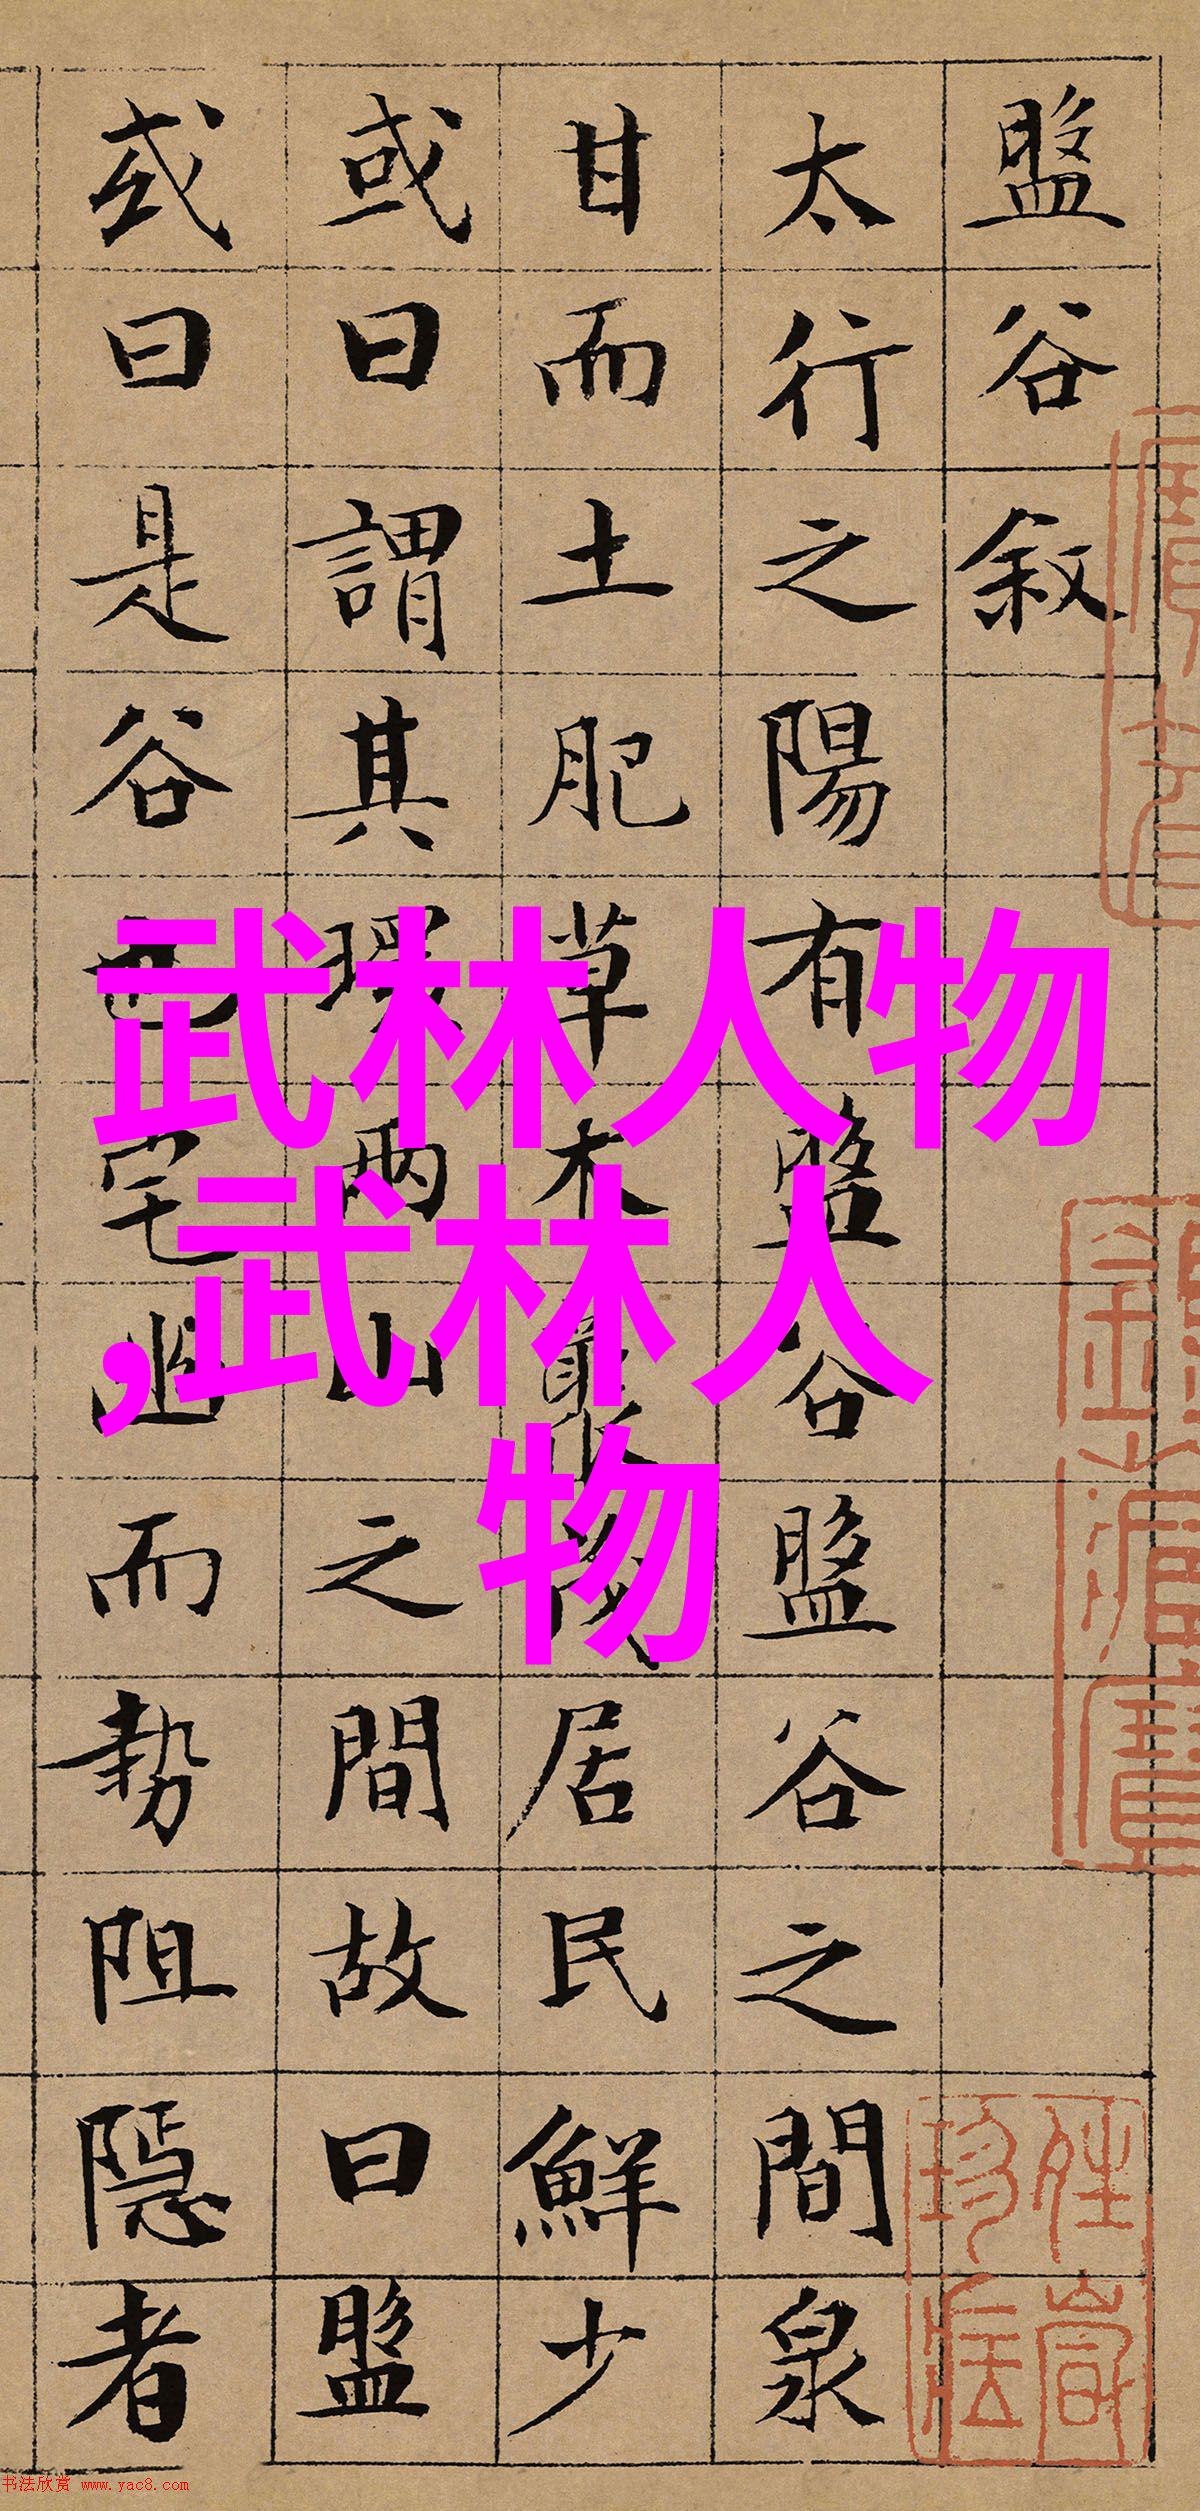 盤谷叙
太行之陽有盤谷盤谷之間泉
甘而土肥草木叢茂居民鮮少
或曰謂其環兩山之間故曰盤
或曰是谷也宅幽而勢阻隱者
武林人物
,武林人
物
书法欣赏 www.yac8.com